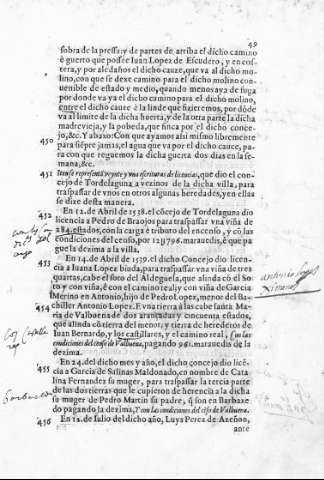 49
sobra de la pressa: y de partes de arriba el dicho camino
è guerto que possee Iuan Lopez de Escudero, y en cos-
tera, y por aledaños el dicho cauze, que va al dicho mo-
lino, con que se dexe camino para el dicho molino con-
uenible de estado y medio, quando menos aya de fuga
por donde va ya el dicho camino para el dicho molino,
entre el dicho cauze à la linde que fizieremos, por dõde
va al limite de la dicha huerta, y de la otra parte la dicha
madrevieja, y la pobeda, que finca por el dicho conce-
450
jo, &c. Y abaxo: Con que ayamos assi mismo libremente
para siẽpre jamas, el agua que va por el dicho cauze, pa-
ra con que reguemos la dicha guerta dos dias en la se-
mana, &c.
451
Item se representã veynte y una escrituras de licencias, que dio el con-
cejo de Tordelaguna a vezinos de la dicha villa, para
traspassar de vnos en otros algunas heredades, y en ellas
se dize desta manera.
452
En 12. de Abril de 1528. el cõcejo de Tordelaguna dio
licencia a Pedro de Braojos para traspassar vna viña de
284. estados, con la carga è tributo del encenso, y cõ las
condiciones del censo, por 12U796. marauedis, è que pa
gue la dezima a la villa.
453
En 14. de Abril de 1539. el dicho Concejo dio licen-
cia a Iuana Lopez biuda, para traspassar vna viña de tres
quartas, cabe el foro del Aldeguela, que alinda cõ el So-
to y con viña, è con el camino real y con viña de Garcia
Merino en Antonio, hijo de Pedro Lopez, menor del Ba-
454
chiller Antonio Lopez. E vna tierra a las cabe Santa Ma-
ria de Valbuena de dos arançadas y cincuenta estados,
que alinda cõ tierra del metor, y tierra de herederos de
Iuan Bernardo, y los castillares, y el camino real, con las
condiciones del censo de Valbuena, pagando 961. marauedis de la
dezima.
455
En 24. del dicho mes y año, el dicho conçejo dio licẽ-
cia a Garcia de Salinas Maldonado, en nombre de Cata
lina Fernandez su muger, para traspassar la tercia parte
de las dos tierras que le cupieron de herencia a la dicha
su muger de Pedro Martin su padre, q̃ son en Barbaxe
do pagando la dezima, Y con las condiciones del cẽso de Valbuena.
456
En 12. de Iulio del dicho año, Luys Perez de Azeñon,
ante